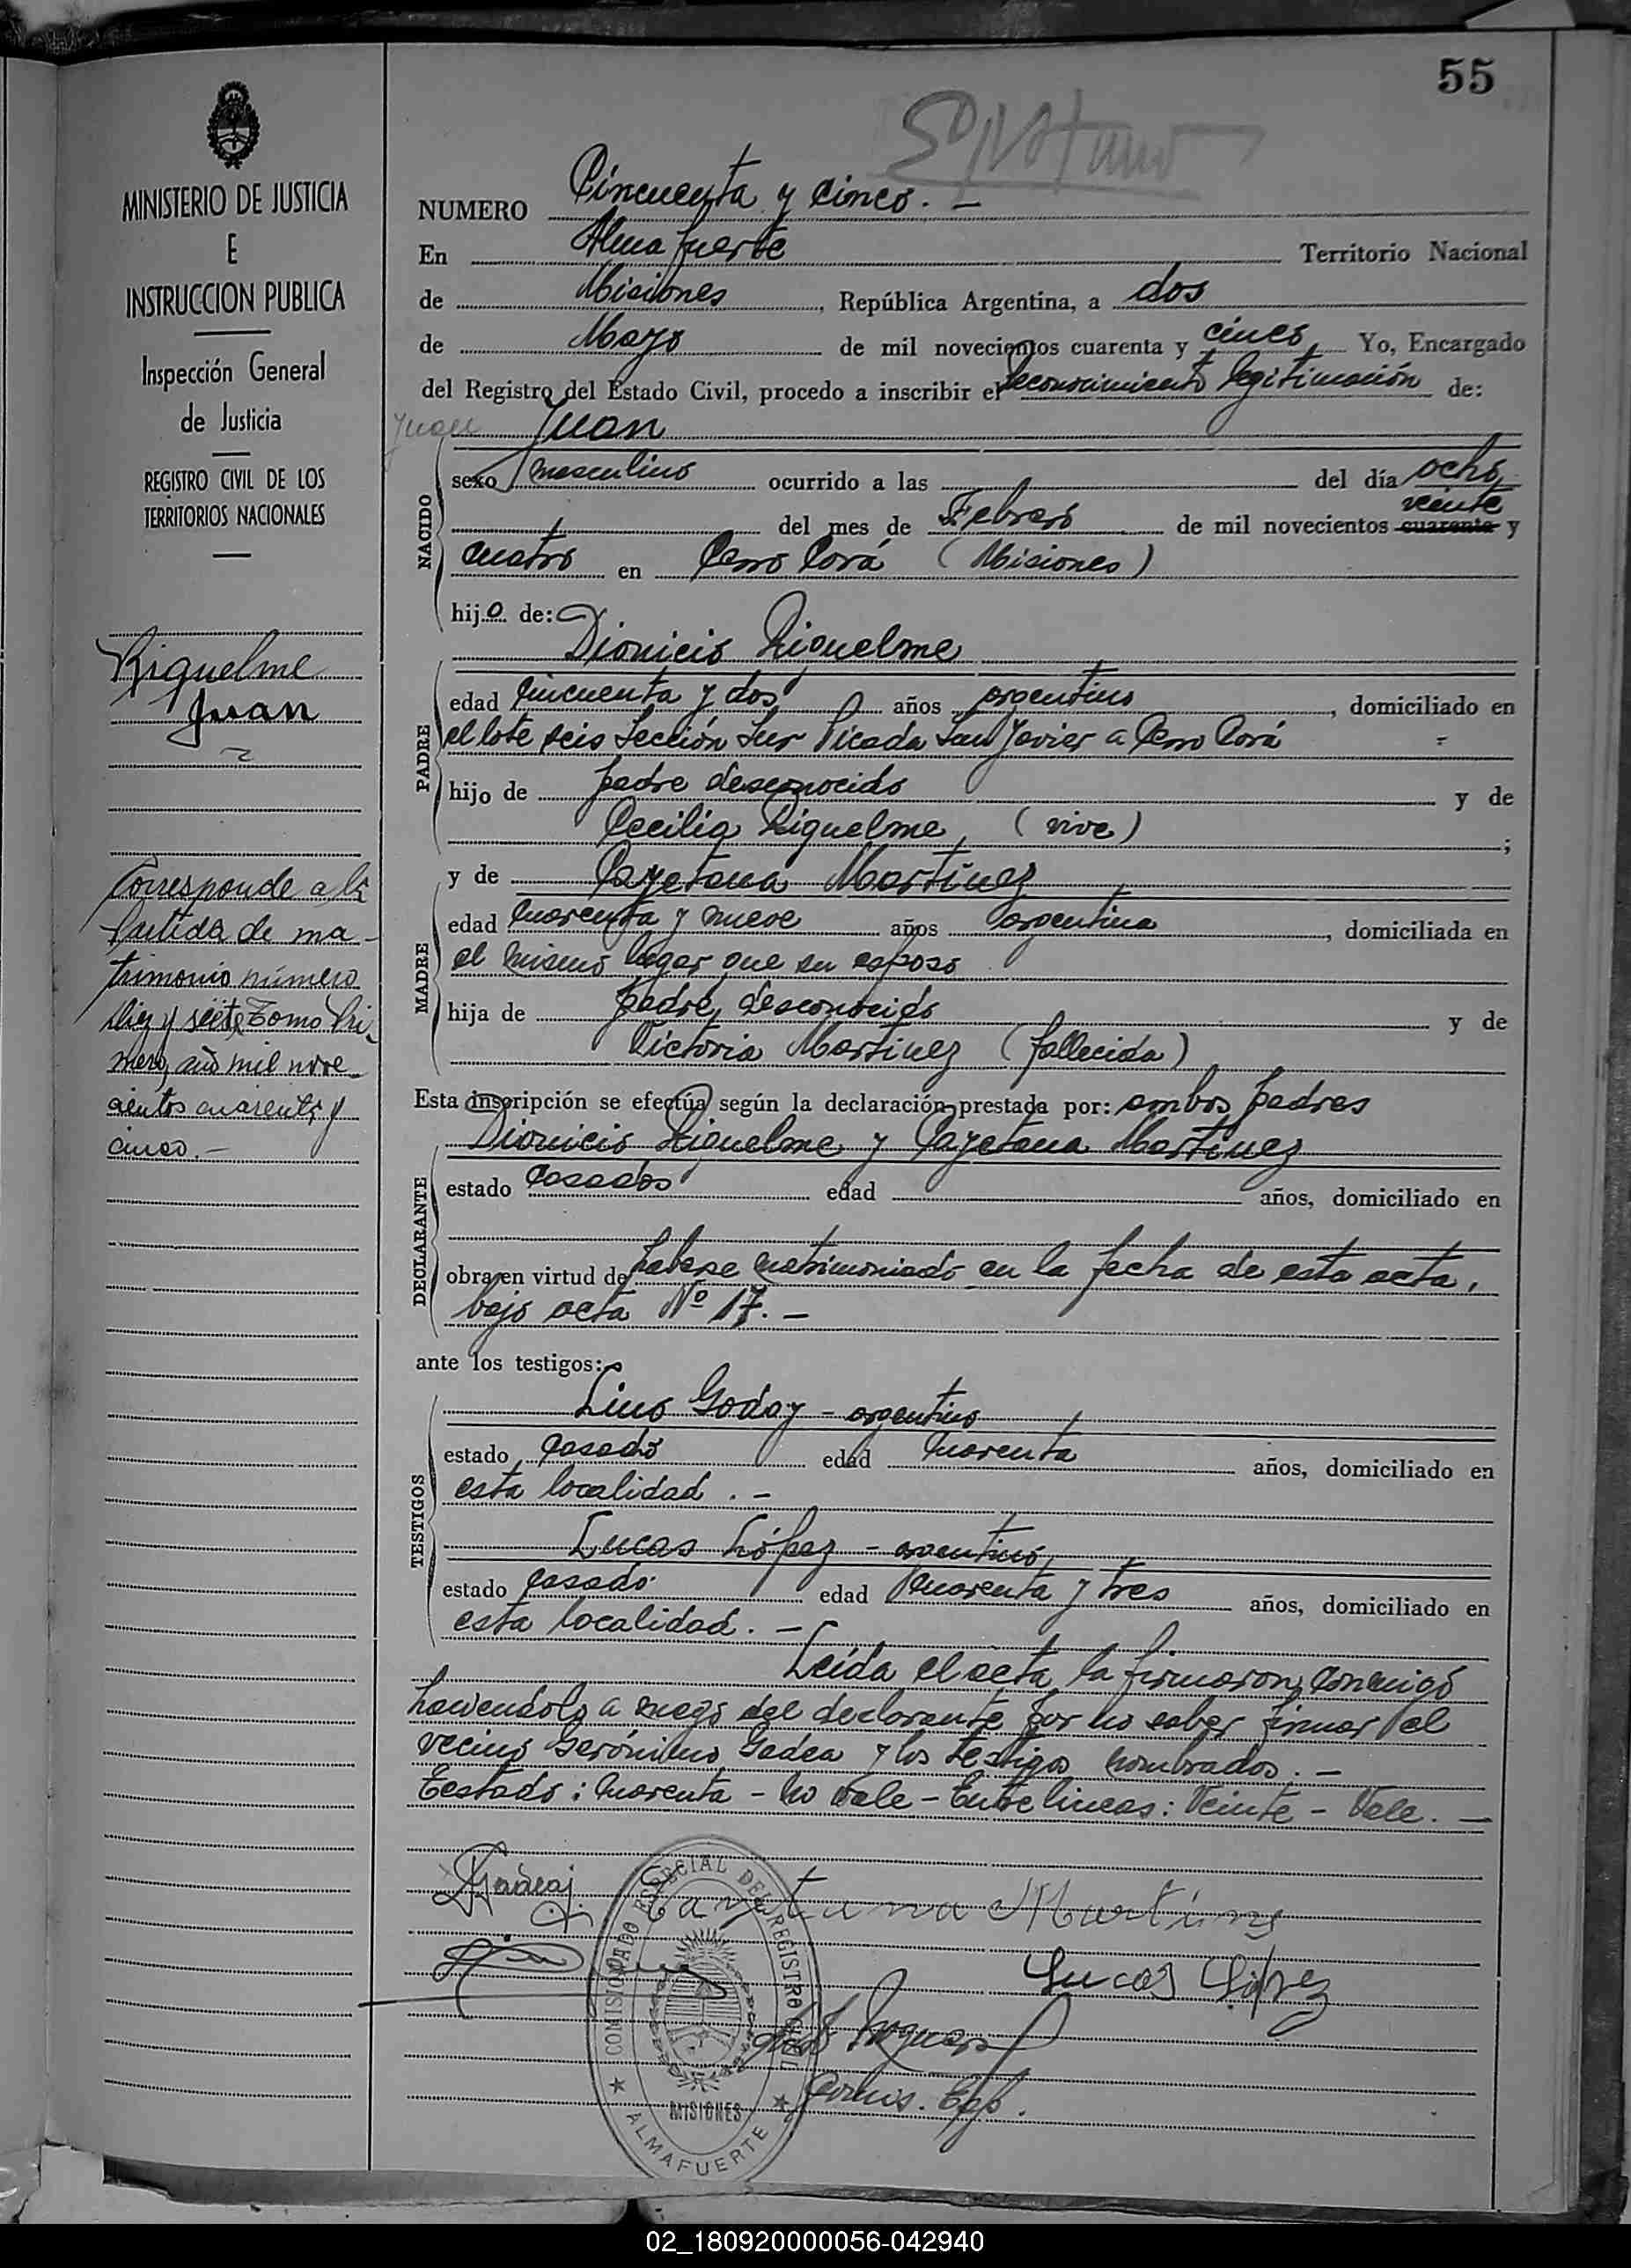 55
MINISTERIO DE JUSTICIA
E
INSTRUCCION PUBLICA
Inspección General
de Justicia
REGISTRO CIVIL DE LOS
TERRITORIOS NACIONALES
Riquelme
Juan
Corresponde a la
Partida de ma-
trimonio número
diez y siete, Tomo Pri-
mero, año mil nove-
cientos cuarenta y
cinco.-
NUMERO Cincuenta y cinco. -
En Alma fuerte Territorio Nacional
de Misiones, República Argentina, a dos
de Mayo de mil novecientos cuarenta y cinco, Yo, Encargado
del Registro del Estado Civil, procedo a inscribir el reconocimiento legitimación de:
Juan Juan
NACIDO
sexo masculino ocurrido a las del día ocho,
veinte
del mes de Febrero de mil novecientos cuarenta y
cuatro en Cerro Corá (Misiones)
hijo de:
Dionicio Riquelme
PADRE
edad cincuenta y dos años argentino, domiciliado en
el lote seis Sección Sur Picada San Javier a Cerro Corá
hijo de padre desconocido y de
Cecilia Riquelme, (vive);
y de Cayetana Martinez
MADRE
edad cuarenta y nueve años argentina, domiciliada en
el mismo lugar que su esposo
hija de padre desconocido y de
Victoria Martinez (fallecida)
Esta inscripción se efectúa según la declaración prestada por: ambos padres
Dionicio Riquelme y Cayetana Martinez
DECLARANTE
estado casados edad años, domiciliado en
obra en virtud de haberse matrimoniado en la fecha de esta acta,
bajo acta Nº 17. -
ante los testigos:
TESTIGOS
Lino Godoy - argentino
estado casado edad cuarenta años, domiciliado en
esta localidad. -
Lucas López - argentino,
estado casado edad cuarenta y tres años, domiciliado en
esta localidad. -
Leída el acta, la firmaron conmigo
haciendolo a ruego del declarante por no saber firmar el
vecino Gerónimo Gadea y los testigos nombrados. -
Testado: cuarenta - no vale - Entre lineas: Veinte - Vale. -
Cayetana Martines
Lucas López
Comis. Esp.
COMISIONADO ESPECIAL DEL REGISTRO CIVIL
MISIONES
ALMAFUERTE
02_180920000056-042940